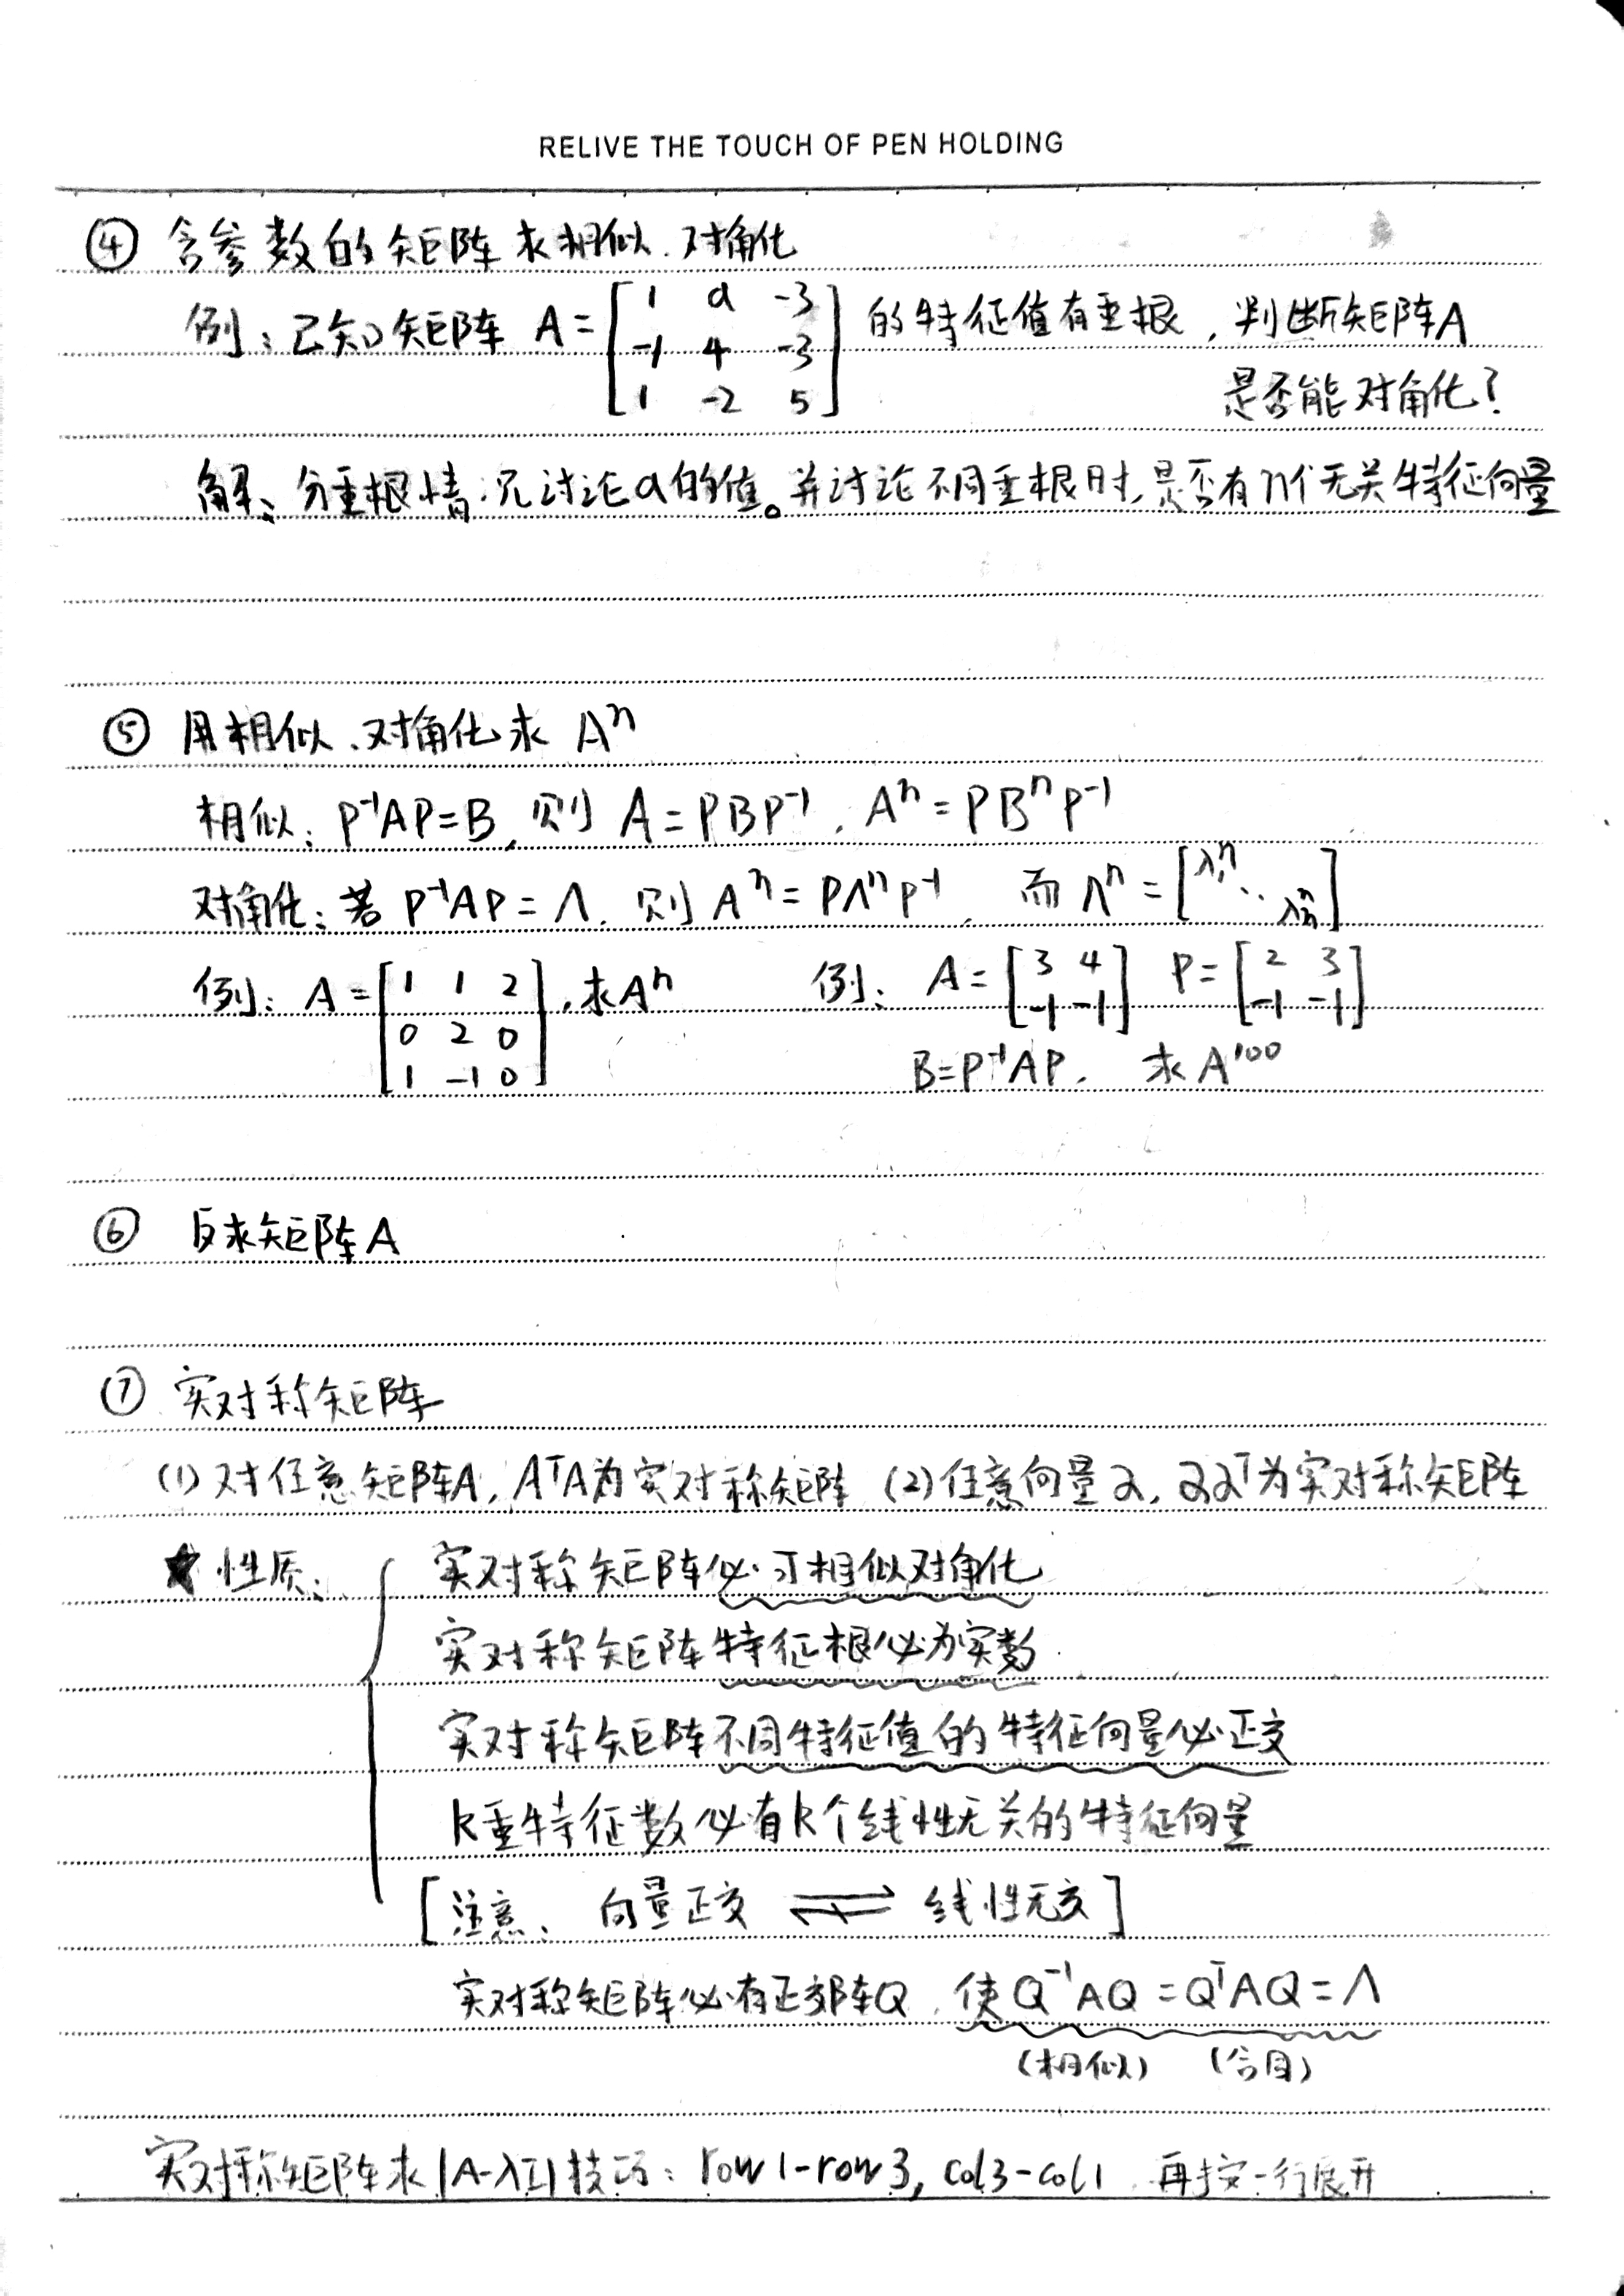 RELIVE THE TOUCH OF PEN HOLDING
④ 含参数的矩阵求相似.对角化
例: 已知矩阵 A = [1 a -3; -1 4 -3; 1 -2 5] 的特征值有重根, 判断矩阵A
是否能对角化?
解、分重根情况讨论a的值。并讨论不同重根时,是否有n个无关特征向量
⑤ 用相似、对角化求 Aⁿ
相似: P⁻¹AP=B, 则 A=PBP⁻¹, Aⁿ=PBⁿP⁻¹
对角化: 若 P⁻¹AP=Λ, 则 Aⁿ=PΛⁿP⁻¹, 而 Λⁿ=[λ₁ⁿ ⋱ λₙⁿ]
例: A=[1 1 2; 0 2 0; 1 -1 0], 求Aⁿ 例: A=[3 4; -1 -1] P=[2 3; -1 -1]
B=P⁻¹AP, 求 A¹⁰⁰
⑥ 反求矩阵A
⑦ 实对称矩阵
(1) 对任意矩阵A, AᵀA为实对称矩阵 (2) 任意向量α, ααᵀ为实对称矩阵
★ 性质: 实对称矩阵必可相似对角化
实对称矩阵特征根必为实数
实对称矩阵不同特征值的特征向量必正交
k重特征数必有k个线性无关的特征向量
[注意: 向量正交 ⇌ 线性无交]
实对称矩阵必有正交阵Q, 使Q⁻¹AQ=QᵀAQ=Λ
(相似) (合同)
实对称矩阵求|A-λI|技巧: row1-row3, col3-col1 再按一行展开